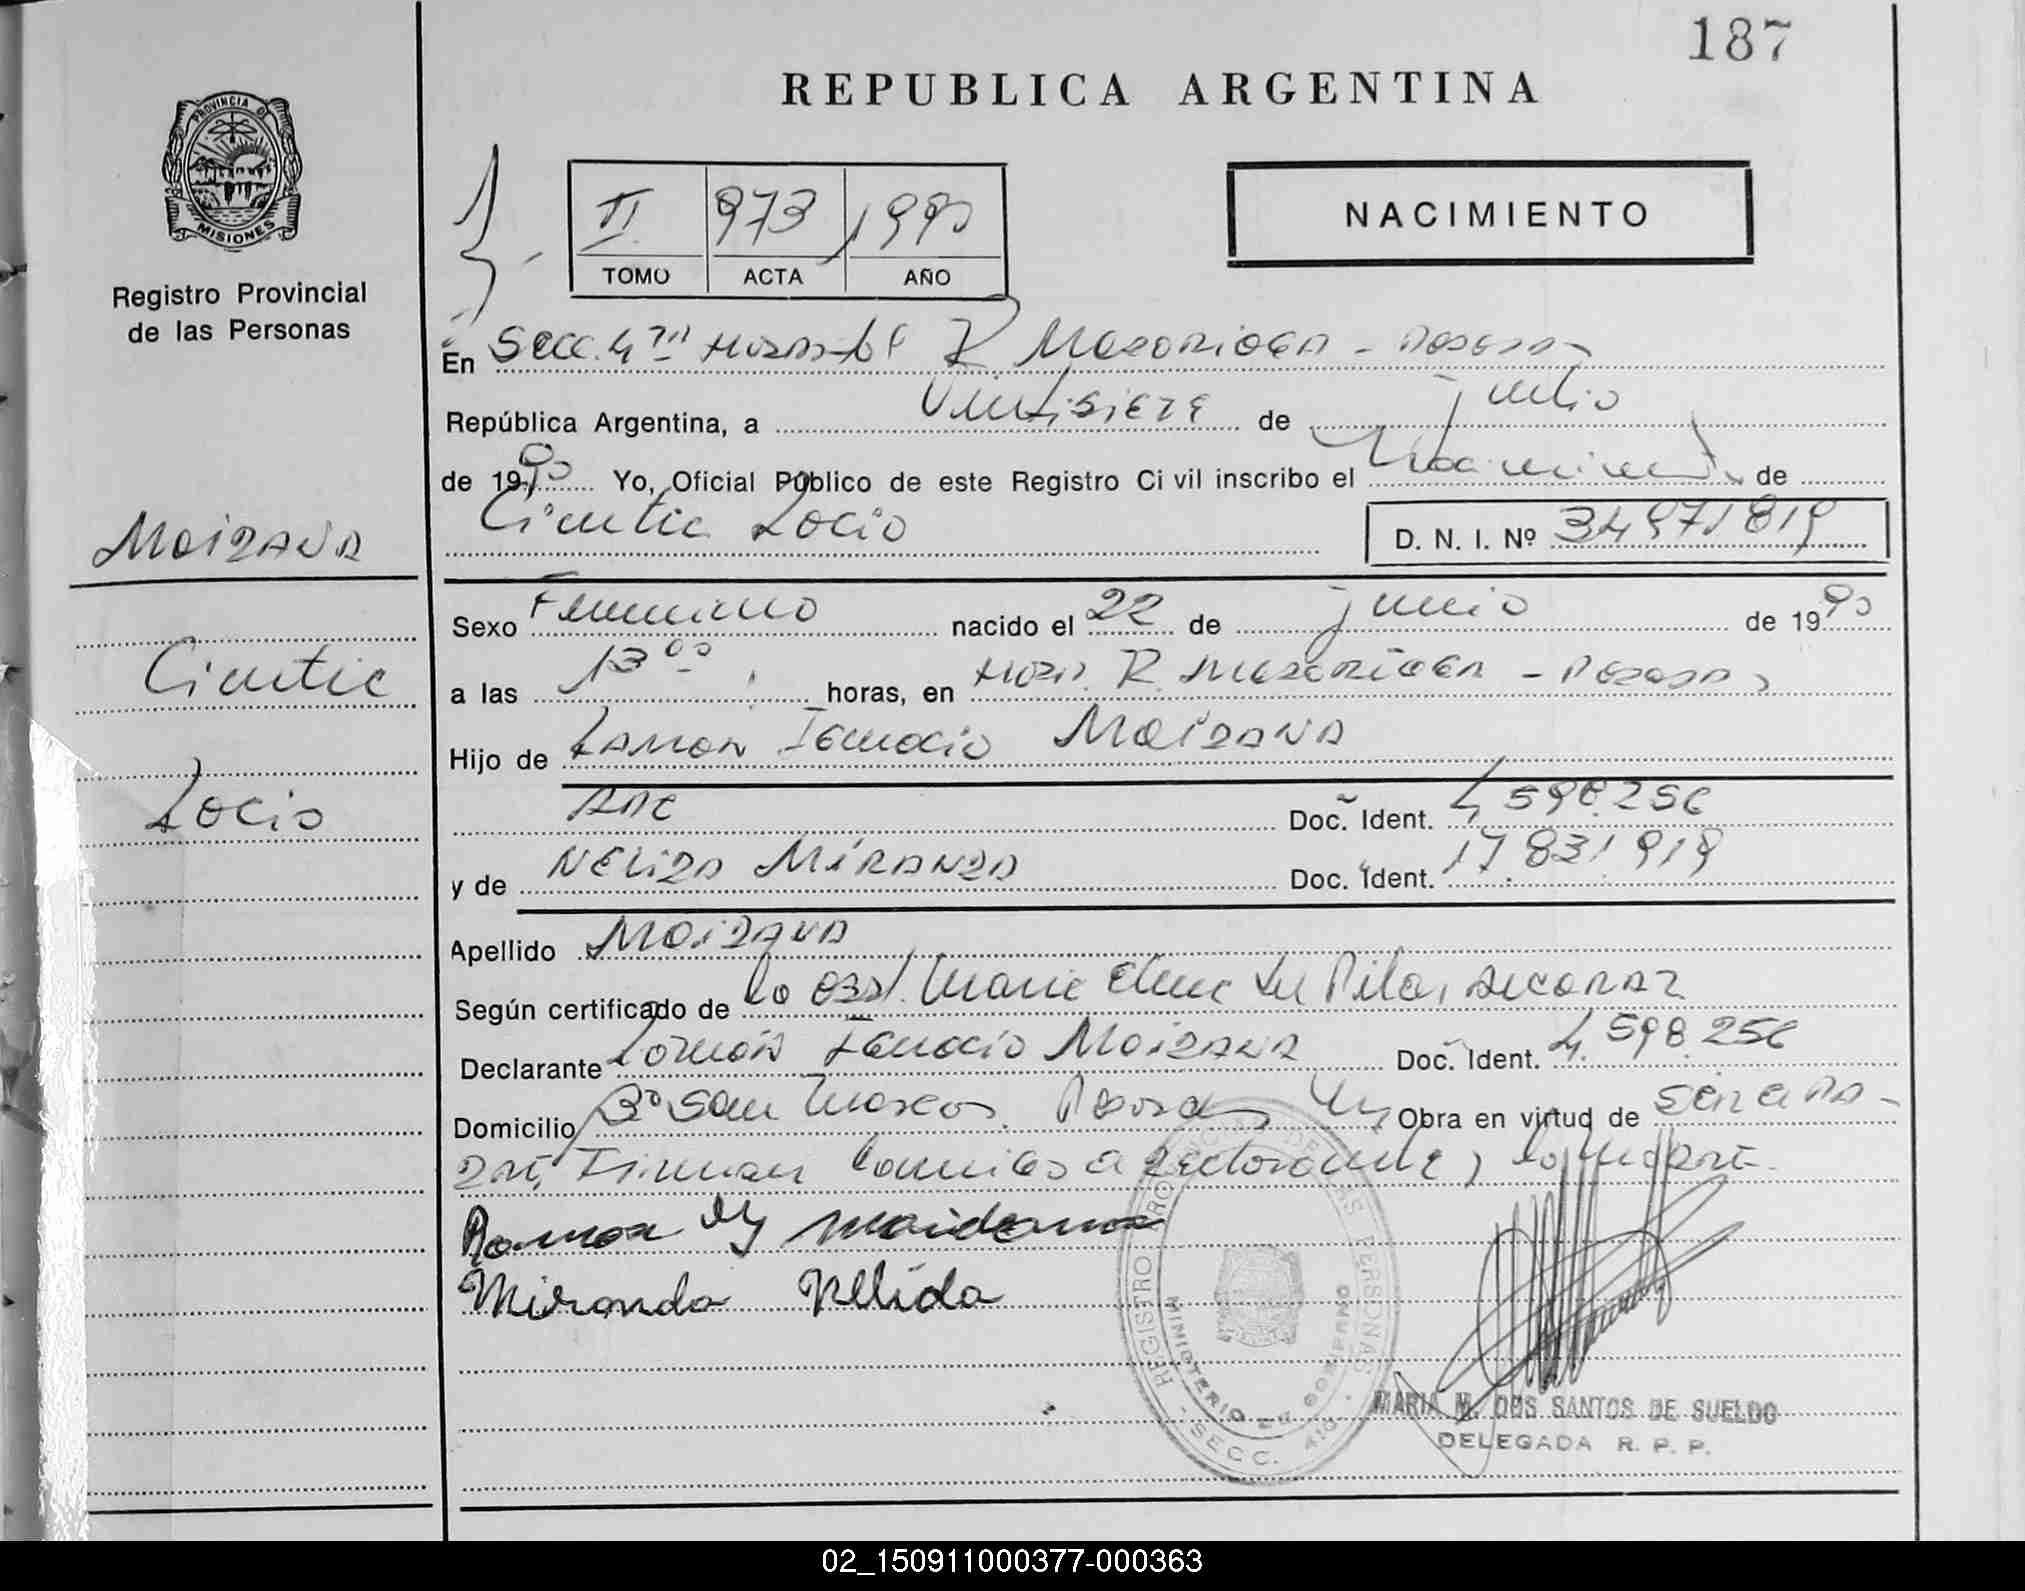 187
REPUBLICA ARGENTINA
PROVINCIA DE
MISIONES
Registro Provincial
de las Personas
II 973 1990
TOMO ACTA AÑO
NACIMIENTO
En Secc. 4ta R Madariaga - Posadas
República Argentina, a Veintisiete de
de 1990 Yo, Oficial Público de este Registro Civil inscribo el Nacimiento de
Cintia Rocio
D. N. I. Nº 34971819
Maidana
Cintia
Rocio
Sexo Femenino nacido el 22 de junio de 1990
a las 13 00 horas, en Hosp. R. Madariaga - Posadas
Hijo de Ramon Ignacio Maidana
Arg Doc. Ident. 4 598.256
y de Nelida Miranda Doc. Ident. 17 831 919
Apellido Maidana
Según certificado de la Obst. Maria del Pilar
Declarante Ramon Ignacio Maidana Doc. Ident. 4. 598.256
Domicilio Bº San Marcos. Posadas Obra en virtud de
Firman
Ramon Maidana
Miranda Nelida
REGISTRO PROVINCIAL DE LAS PERSONAS
MINISTERIO DE GOBIERNO
- SECC. 4ta. -
MARIA M. DOS SANTOS DE SUELDO
DELEGADA R. P. P.
02_150911000377-000363